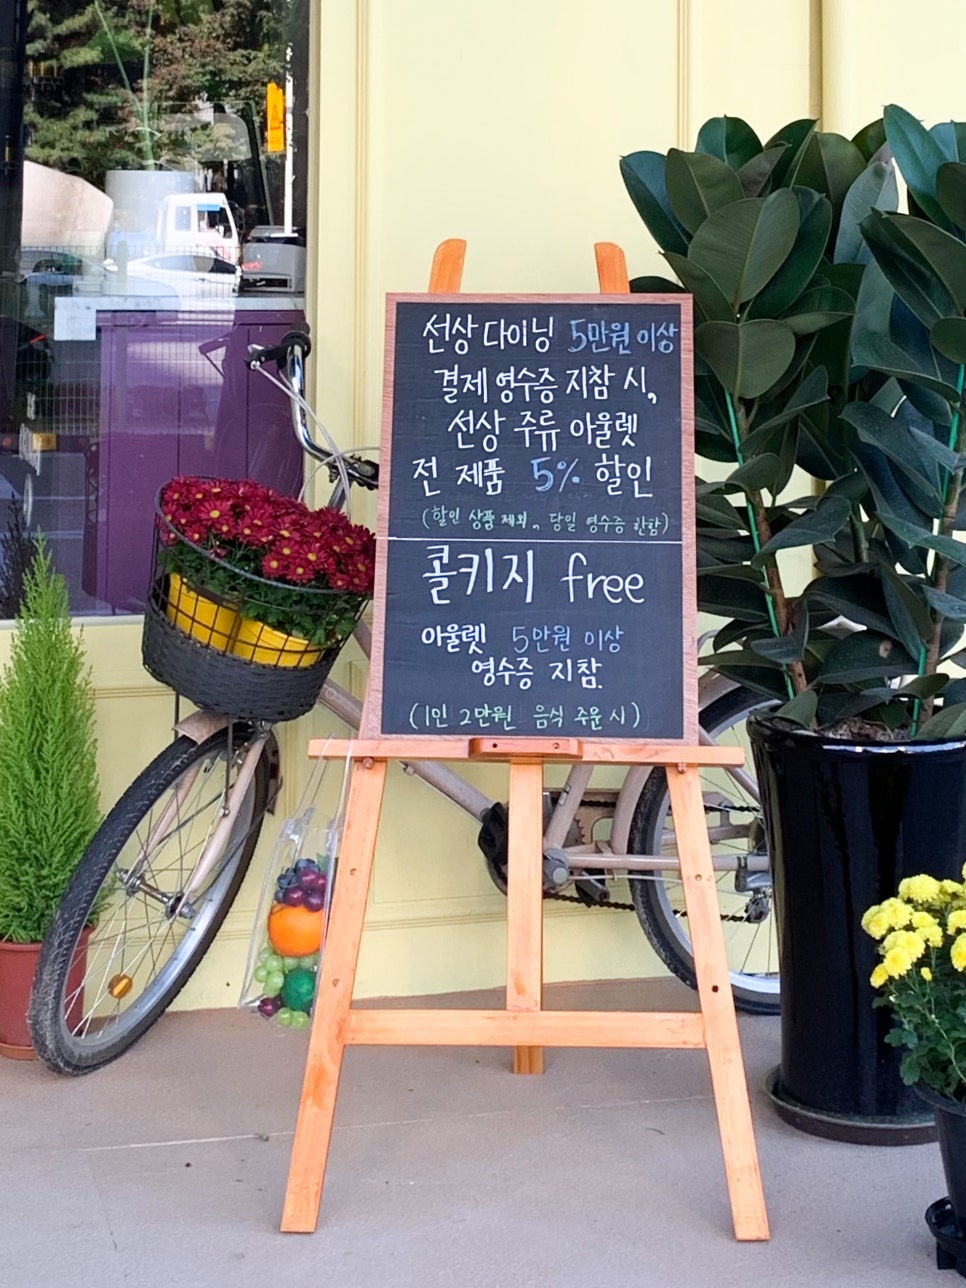 선상 다이닝 5만원 이상
결제 영수증 지참 시,
선상 주류 아울렛
전 제품 5% 할인
(할인 상품 제외, 당일 영수증 한함)
콜키지 free
아울렛 5만원 이상
영수증 지참.
(1인 2만원 음식 주문 시)